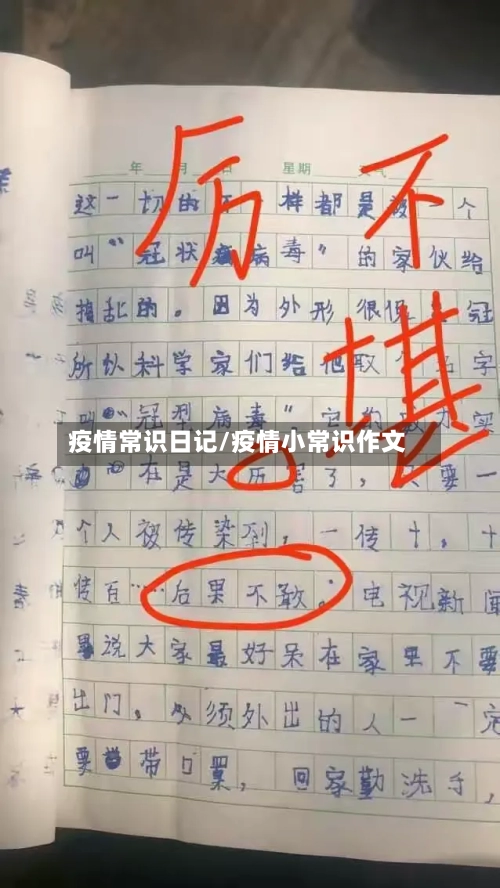 年 月 日 星期 天气
厉 不
堪
这一切的不一样都是被一个
叫“冠状病毒”的家伙给
捣乱的。因为外形很像 冠
所以科学家们给他取个名字
叫“冠型病毒”。它的 实
在是大历害了，只要一
疫情常识日记/疫情小常识作文
个人被传染到，一传十，十
传百……后果不敢。电视新闻
里说大家最好呆在家里不要
出门。必须外出的人一定
要带口罩，回家勤洗手，